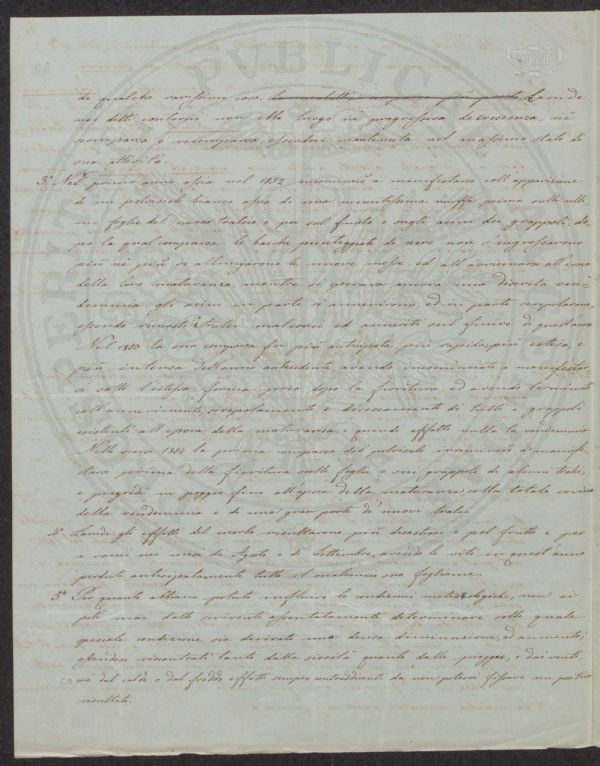 di qualche rarissimo caso. La malattia comparve più presto La onde
nei detti contorni non ebbe luogo ne progressiva decrescenza, nè
scomparsa e ricomparsa, essendosi mantenuta nel massimo stato di
sua attività.
3.° Nel primo anno ossia nel 1852 incominciò a manifestarsi coll'apparizione
di un polviscolo bianco ossia di una minutissima muffa prima sulle ulti-
me foglie del nuovo tralcio e poi sul frutto e sugli acini dei grappoli, do-
po la qual comparsa le bacche punteggiate di nero non s'ingrossarono
più nè più si allungarono le nuove messe, ed all'avvicinarsi all'epoca
della loro maturanza mentre si sperava ancora una discreta ven-
demmia gli acini in parte si annerirono, ed in parte screpolarono,
essendo rimasti i tralci malconci ed anneriti sul finire di quell'anno
Nel 1853 la sua comparsa fu più anticipata più rapida, più estesa, e
più intensa dell'anno antecedente, avendo incominciato a manifestar-
si sotto l'istessa forma poco dopo la fioritura, ed avendo terminato
coll'annerimento, screpolamento e disseccamento di tutti i grappoli
esistenti all'epoca della maturanza, quindi affatto nulla la vendemmia
Nello scorso 1854 la prima comparsa del polviscolo incominciò a manife-
starsi prima della fioritura sulle foglie e sui grappoli di alcuni tralci,
e progredì in peggio fino all'epoca della maturanza colla totale rovina
della vendemmia e di una gran parte di nuovi tralci
4.° Laonde gli effetti del morbo risultarono più disastrosi e pel frutto e per
i rami nei mesi di Agosto e di Settembre, avendo le viti in quest'anno
perduto anticipatamente tutto il malconcio suo fogliame.
5.° Per quanto abbiano potuto influire le condizioni meteorologiche, non si
può mai dallo scrivente apuntatamente determinare sotto quale
speciale condizione sia derivato una decisa diminuzione, od aumento;
essendosi riscontrati tanto dalla siccità quanto dalle pioggie, e dai venti,
come dal caldo e dal freddo effetti sempre contraddicenti da non potersi fissare un positivo
risultato.